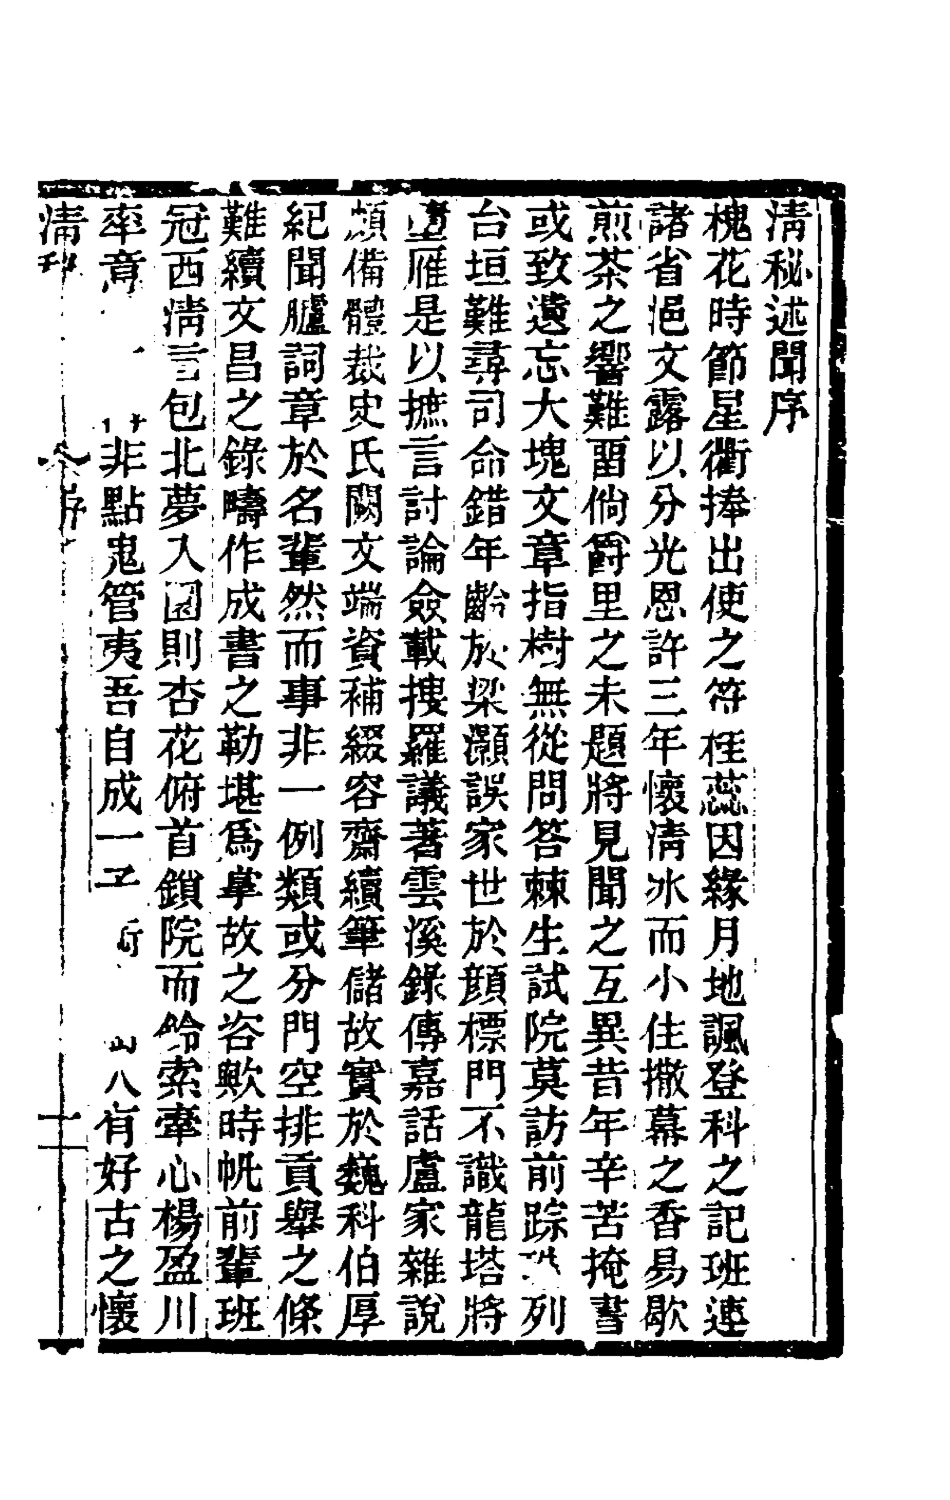 清秘述聞序
槐花時節星衢捧出使之符桂蕊因緣月地諷登科之記班連
諸省浥文露以分光恩許三年懷清冰而小住撤幕之香易歇
煎茶之響難畱倘爵里之未題將見聞之互異昔年辛苦掩書
或致遺忘大塊文章指樹無從問答棘生試院莫訪前踪列
台垣難尋司命錯年齡於梁灝誤家世於顏標門不識龍塔將
雁是以摭言討論僉載搜羅議著雲溪錄傳嘉話盧家雜說
頗備體裁史氏闕文端資補綴容齋續筆儲故實於巍科伯厚
紀聞臚詞章於名輩然而事非一例類或分門空排貢舉之條
難續文昌之錄疇作成書之勒堪爲掌故之咨歟時帆前輩班
冠西清言包北夢入園則杏花俯首鎖院而鈴索牽心楊盈川
率章非點鬼管夷吾自成一有好古之懷
清 序 二